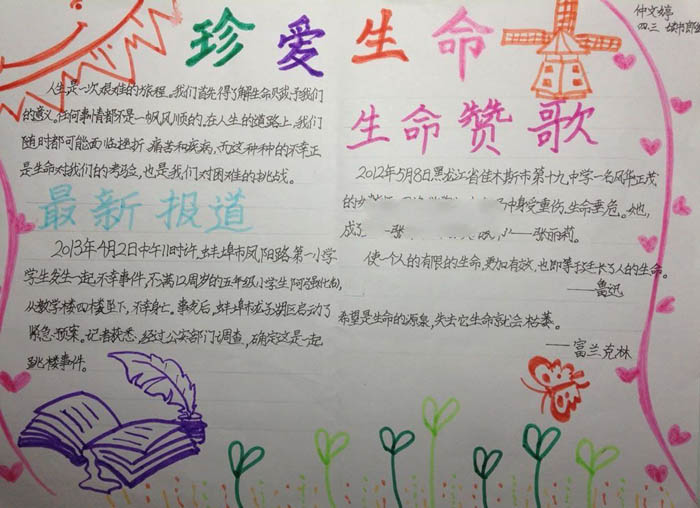 珍爱生命
仲文婷
四三
人生是一次艰难的旅程。我们首先得了解生命赋予我们
的意义,任何事情都不是一帆风顺的,在人生的道路上,我们
随时都可能面临挫折、痛苦和疾病,而这种种的不幸正
是生命对我们的考验,也是我们对困难的挑战。
最新报道
2013年4月2日中午11时许,蚌埠市凤阳路第一小学
学生发生一起不幸事件,不满12周岁的五年级小学生阿强(化名)
从教学楼四楼坠下,不幸身亡。事发后,蚌埠市龙子湖区启动了
紧急预案。记者获悉,经过公安部门调查,确定这是一起
跳楼事件。
生命赞歌
2012年5月8日,黑龙江省佳木斯市第十九中学一名风华正茂
的女 中身受重伤,生命垂危。她,
成了 张 张丽莉。
使一个人的有限的生命,更加有效,也即等于延长了人的生命。
——鲁迅
希望是生命的源泉,失去它生命就会枯萎。
——富兰克林